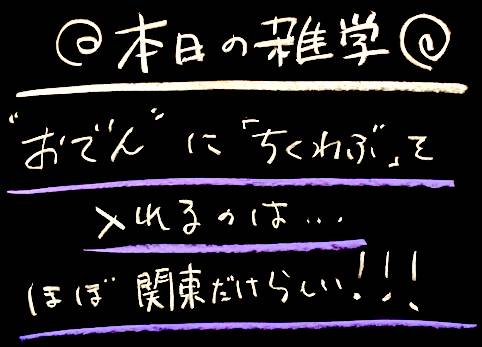 本日の雑学
"おでん"に「ちくわぶ」を
入れるのは…
ほぼ関東だけらしい!!!